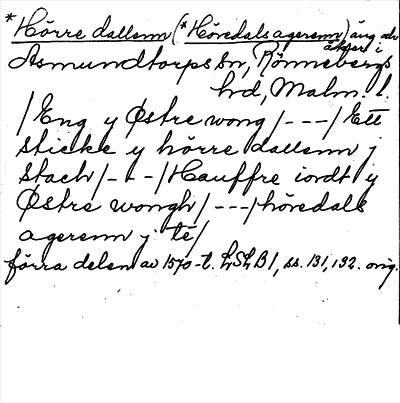 *Hörre dallenn (*Höredalsagerenn) äng och
åker i
Asmundtorps sn, Rönnebergs
hd, Malm. l.
/Eng y Østre wong/---/Ett
sticke y hörre dallenn j
stach/---/Hauffre iordt y
Østre wongh/---/höredals
agerenn j té/
förra delen av 1570-t. LSLB1, ss. 131, 132. orig.